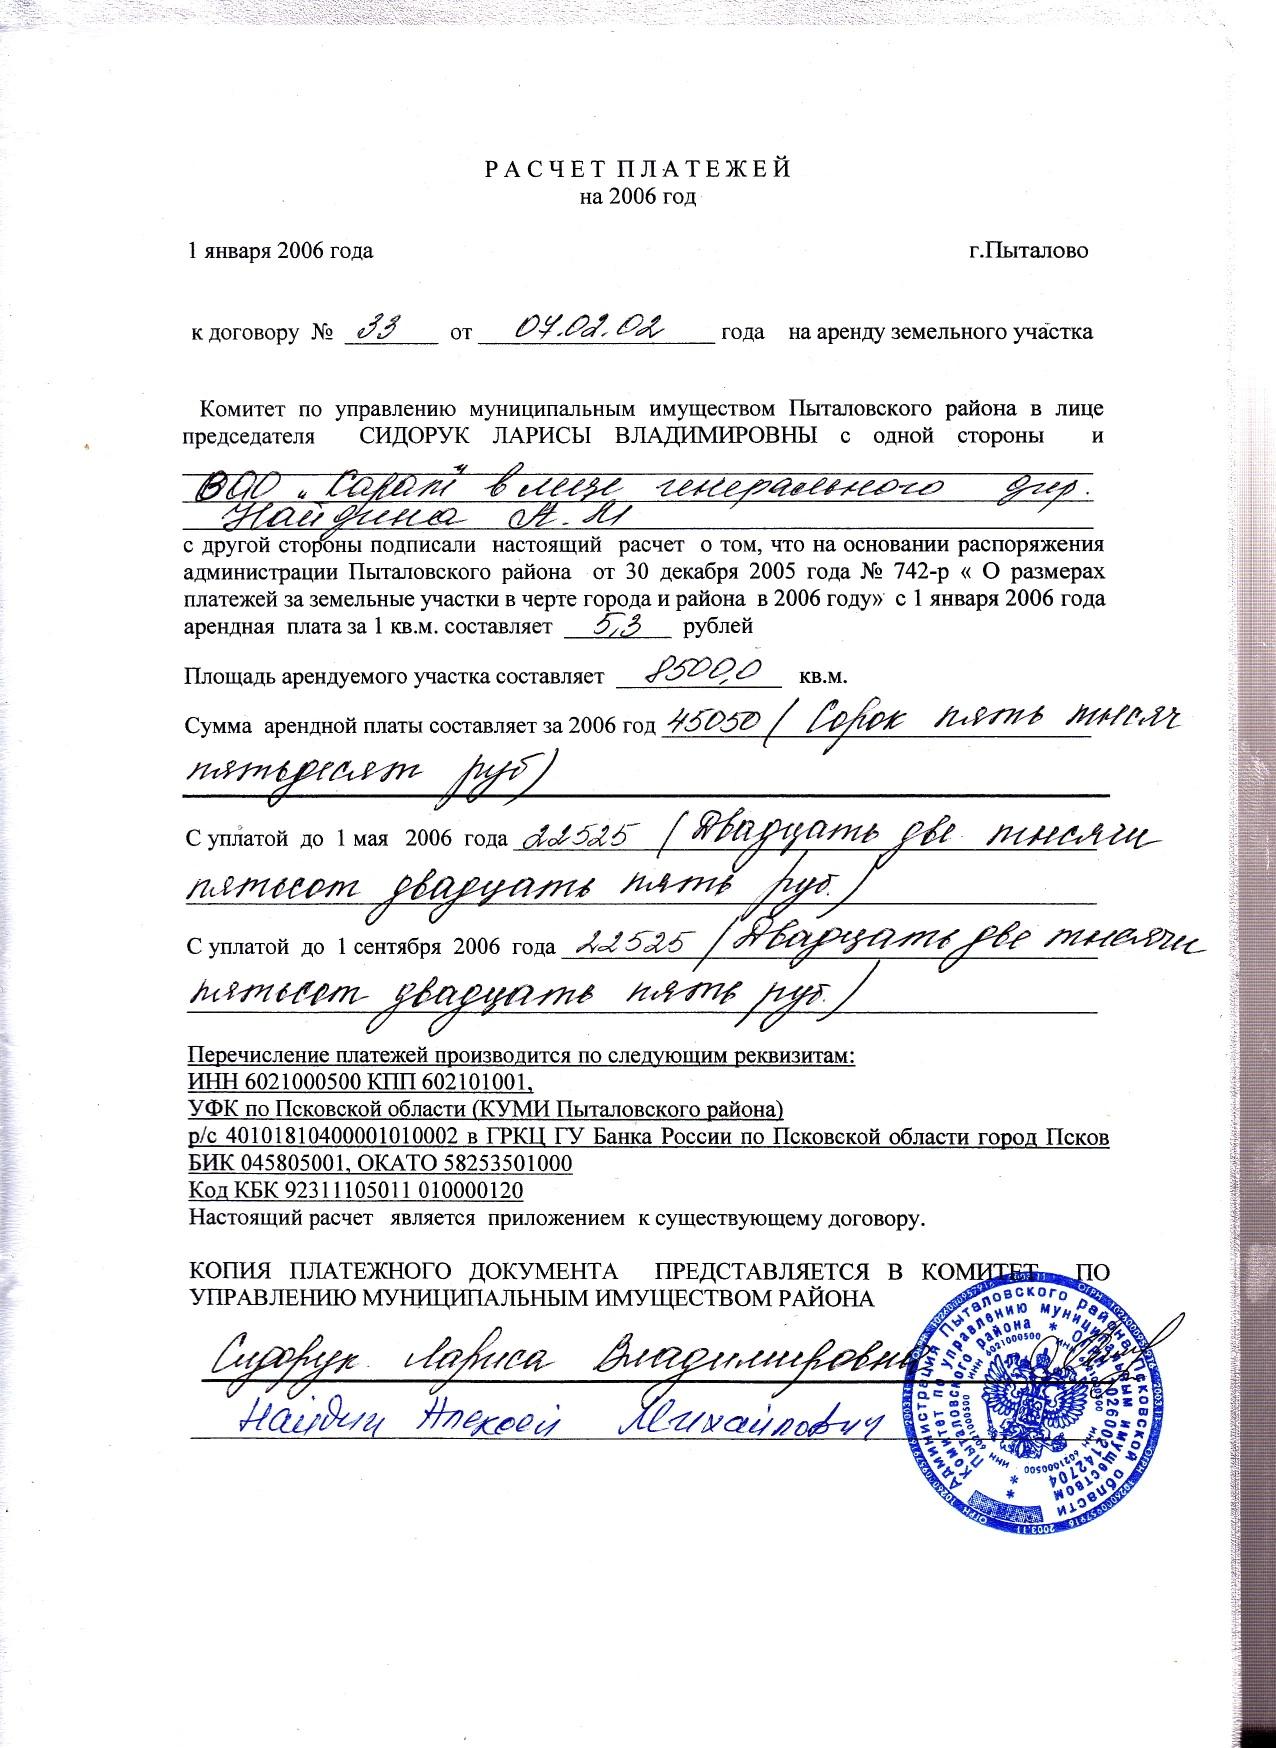 Р А С Ч Е Т  П Л А Т Е Ж Е Й
на 2006 год
1 января 2006 года г.Пыталово
к договору № 33 от 07.02.02 года на аренду земельного участка
Комитет по управлению муниципальным имуществом Пыталовского района в лице
председателя СИДОРУК ЛАРИСЫ ВЛАДИМИРОВНЫ с одной стороны и
ОАО „ " в лице генерального дир.
Найдина А.М
с другой стороны подписали настоящий расчет о том, что на основании распоряжения
администрации Пыталовского района от 30 декабря 2005 года № 742-р « О размерах
платежей за земельные участки в черте города и района в 2006 году» с 1 января 2006 года
арендная плата за 1 кв.м. составляет 5,3 рублей
Площадь арендуемого участка составляет 8500,0 кв.м.
Сумма арендной платы составляет за 2006 год 45050 ( Сорок пять тысяч
пятьдесят руб)
С уплатой до 1 мая 2006 года 22525 (Двадцать две тысячи
пятьсот двадцать пять руб.)
С уплатой до 1 сентября 2006 года 22525 (Двадцать две тысячи
пятьсот двадцать пять руб.)
Перечисление платежей производится по следующим реквизитам:
ИНН 6021000500 КПП 602101001,
УФК по Псковской области (КУМИ Пыталовского района)
р/с 40101810400001010002 в ГРКЦ ГУ Банка России по Псковской области город Псков
БИК 045805001, ОКАТО 58253501000
Код КБК 92311105011 010000120
Настоящий расчет является приложением к существующему договору.
КОПИЯ ПЛАТЕЖНОГО ДОКУМЕНТА ПРЕДСТАВЛЯЕТСЯ В КОМИТЕТ ПО
УПРАВЛЕНИЮ МУНИЦИПАЛЬНЫМ ИМУЩЕСТВОМ РАЙОНА
Сидорук Лариса Владимировна
Найдин Алексей Михайлович
Администрация Пыталовского района Псковской области
Комитет по управлению муниципальным имуществом
Пыталовского района * ОГРН 1026002142704 *
ИНН 6021000500